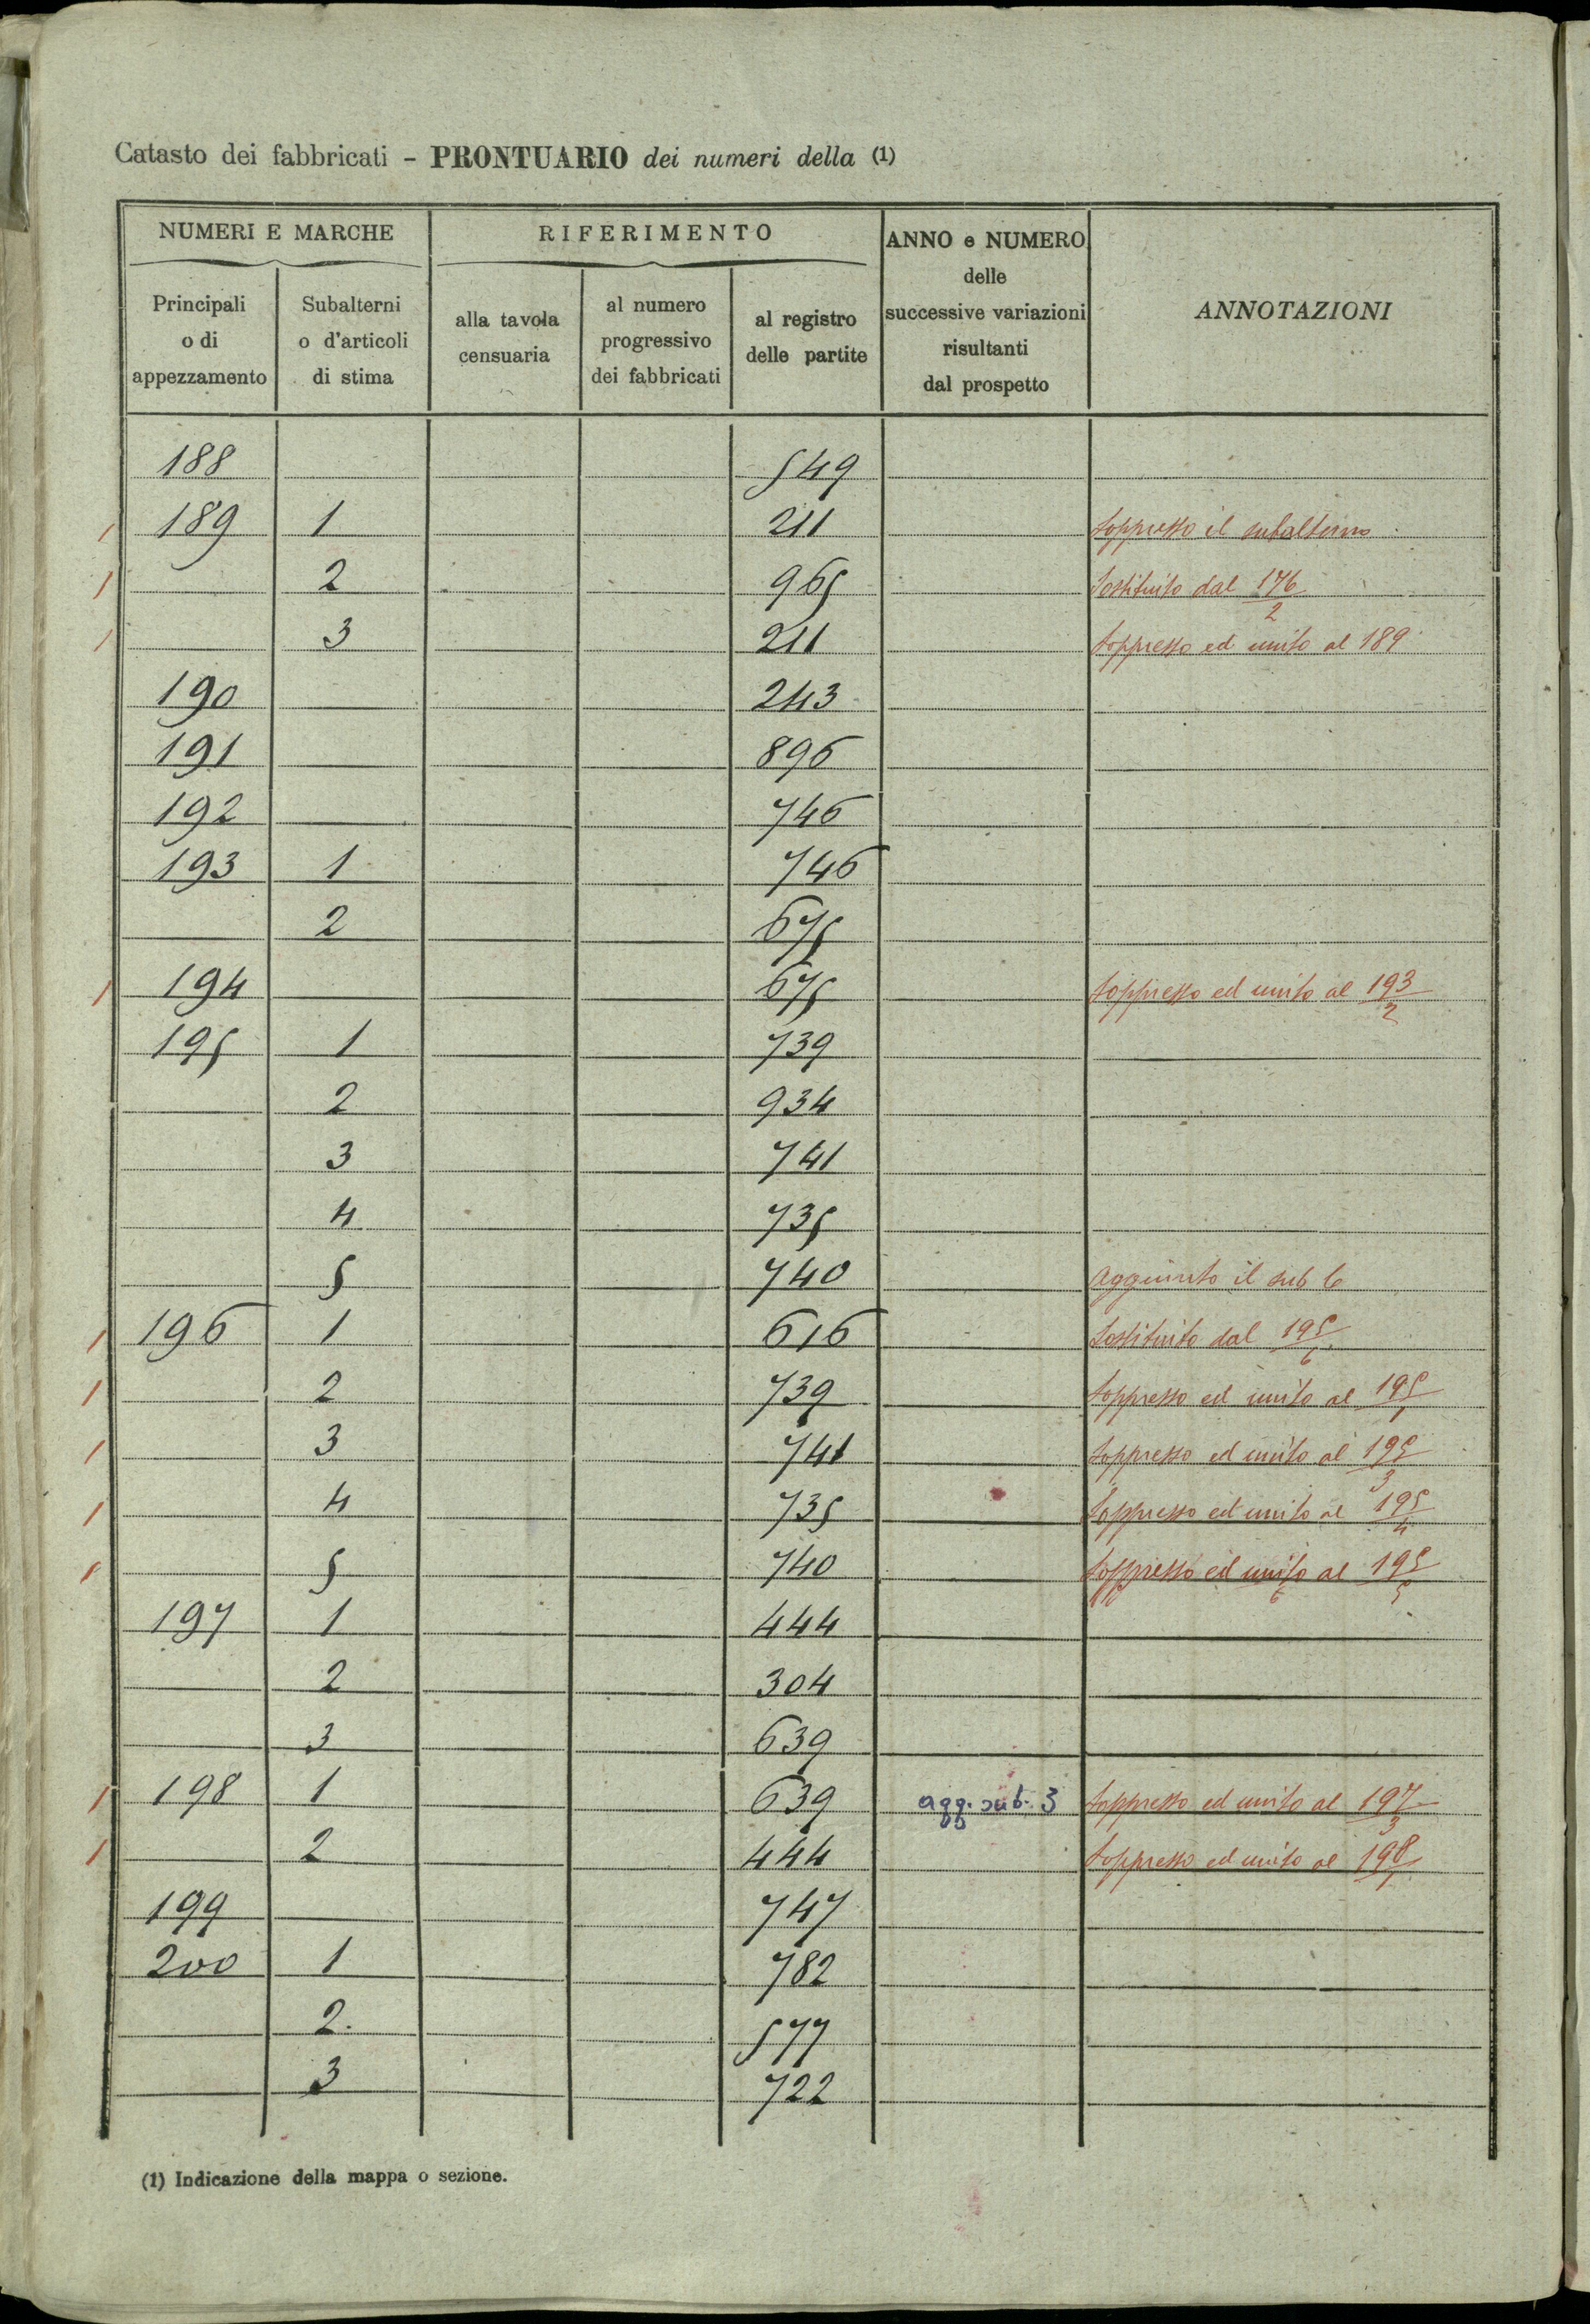 Catasto dei fabbricati - PRONTUARIO dei numeri della (1)
NUMERI E MARCHE RIFERIMENTO ANNO e NUMERO delle successive variazioni risultanti dal prospetto ANNOTAZIONI
Principali o di appezzamento Subalterni o d'articoli di stima alla tavola censuaria al numero progressivo dei fabbricati al registro delle partite
188 549
/ 189 1 211 Soppresso il subalterno
/ 2 965 Sostituito dal 176/2
/ 3 211 Soppresso ed unito al 189
190 243
191 896
192 746
193 1 746
2 675
/ 194 675 Soppresso ed unito al 193/2
195 1 739
2 934
3 741
4 735
5 740 Aggiunto il sub 6
/ 196 1 616 Sostituito dal 195/6
/ 2 739 Soppresso ed unito al 195/1
/ 3 741 Soppresso ed unito al 195/3
/ 4 735 Soppresso ed unito al 195/4
/ 5 740 Soppresso ed unito al 195/5
197 1 444
2 304
3 639
/ 198 1 639 agg. sub. 3 Soppresso ed unito al 197/3
/ 2 444 Soppresso ed unito al 198/1
199 747
200 1 782
2. 577
3 722
(1) Indicazione della mappa o sezione.